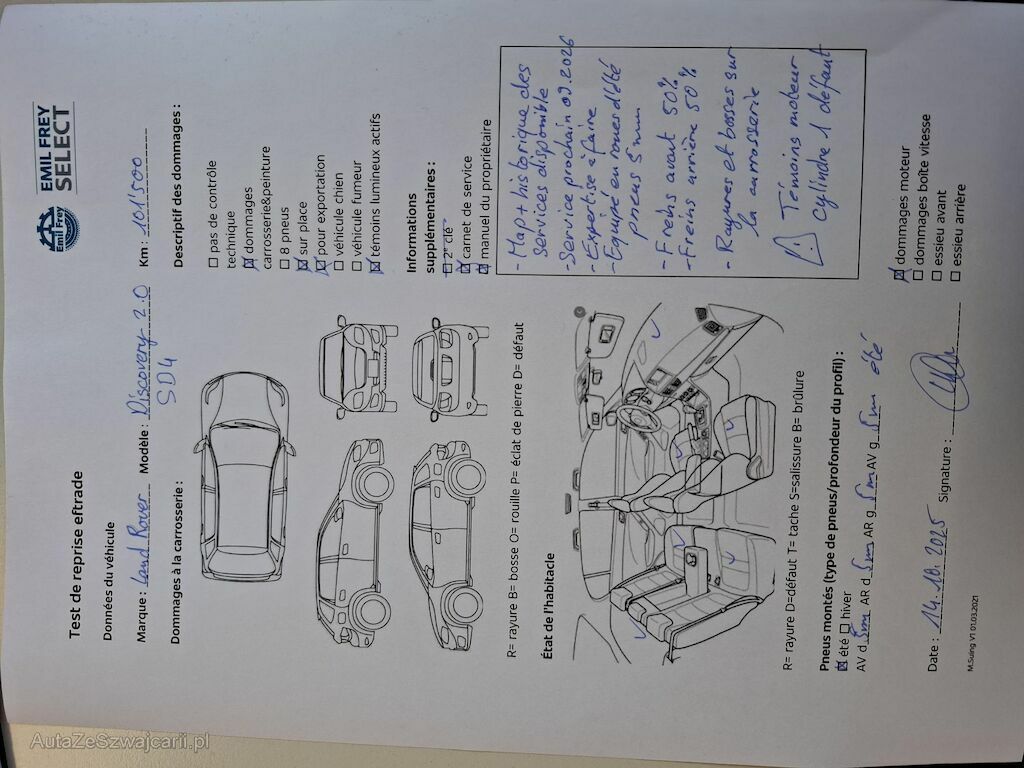 Emil Frey
EMIL FREY
SELECT
Test de reprise eftrade
Données du véhicule
Marque : Land Rover Modèle : Discovery 2.0 Km : 101'500
SD4
Dommages à la carrosserie :
Descriptif des dommages :
☐ pas de contrôle
technique
☒ dommages
carrosserie&peinture
☐ 8 pneus
☒ sur place
☒ pour exportation
☐ véhicule chien
☐ véhicule fumeur
☒ témoins lumineux actifs
R= rayure B= bosse O= rouille P= éclat de pierre D= défaut
Informations
supplémentaires :
☐ 2e clé
☒ carnet de service
☒ manuel du propriétaire
État de l'habitacle
- Map + historique des
services disponible
- Service prochain 09.2026
- Expertise à faire
- Equipé en roues d'été
pneus 5mm
- Freins avant 50%
- Freins arrière 50%
- Rayures et bosses sur
la carrosserie
Témoins moteur
Cylindre 1 défaut
R= rayure D=défaut T= tache S=salissure B= brûlure
Pneus montés (type de pneus/profondeur du profil) :
☒ été ☐ hiver
AV d 5mm AR d 5mm AR g 5mm AV g 5mm été
☒ dommages moteur
☐ dommages boîte vitesse
☐ essieu avant
☐ essieu arrière
Date : 14.10.2025 Signature :
M.Suing V1 01.03.2021
AutaZeSzwajcarii.pl